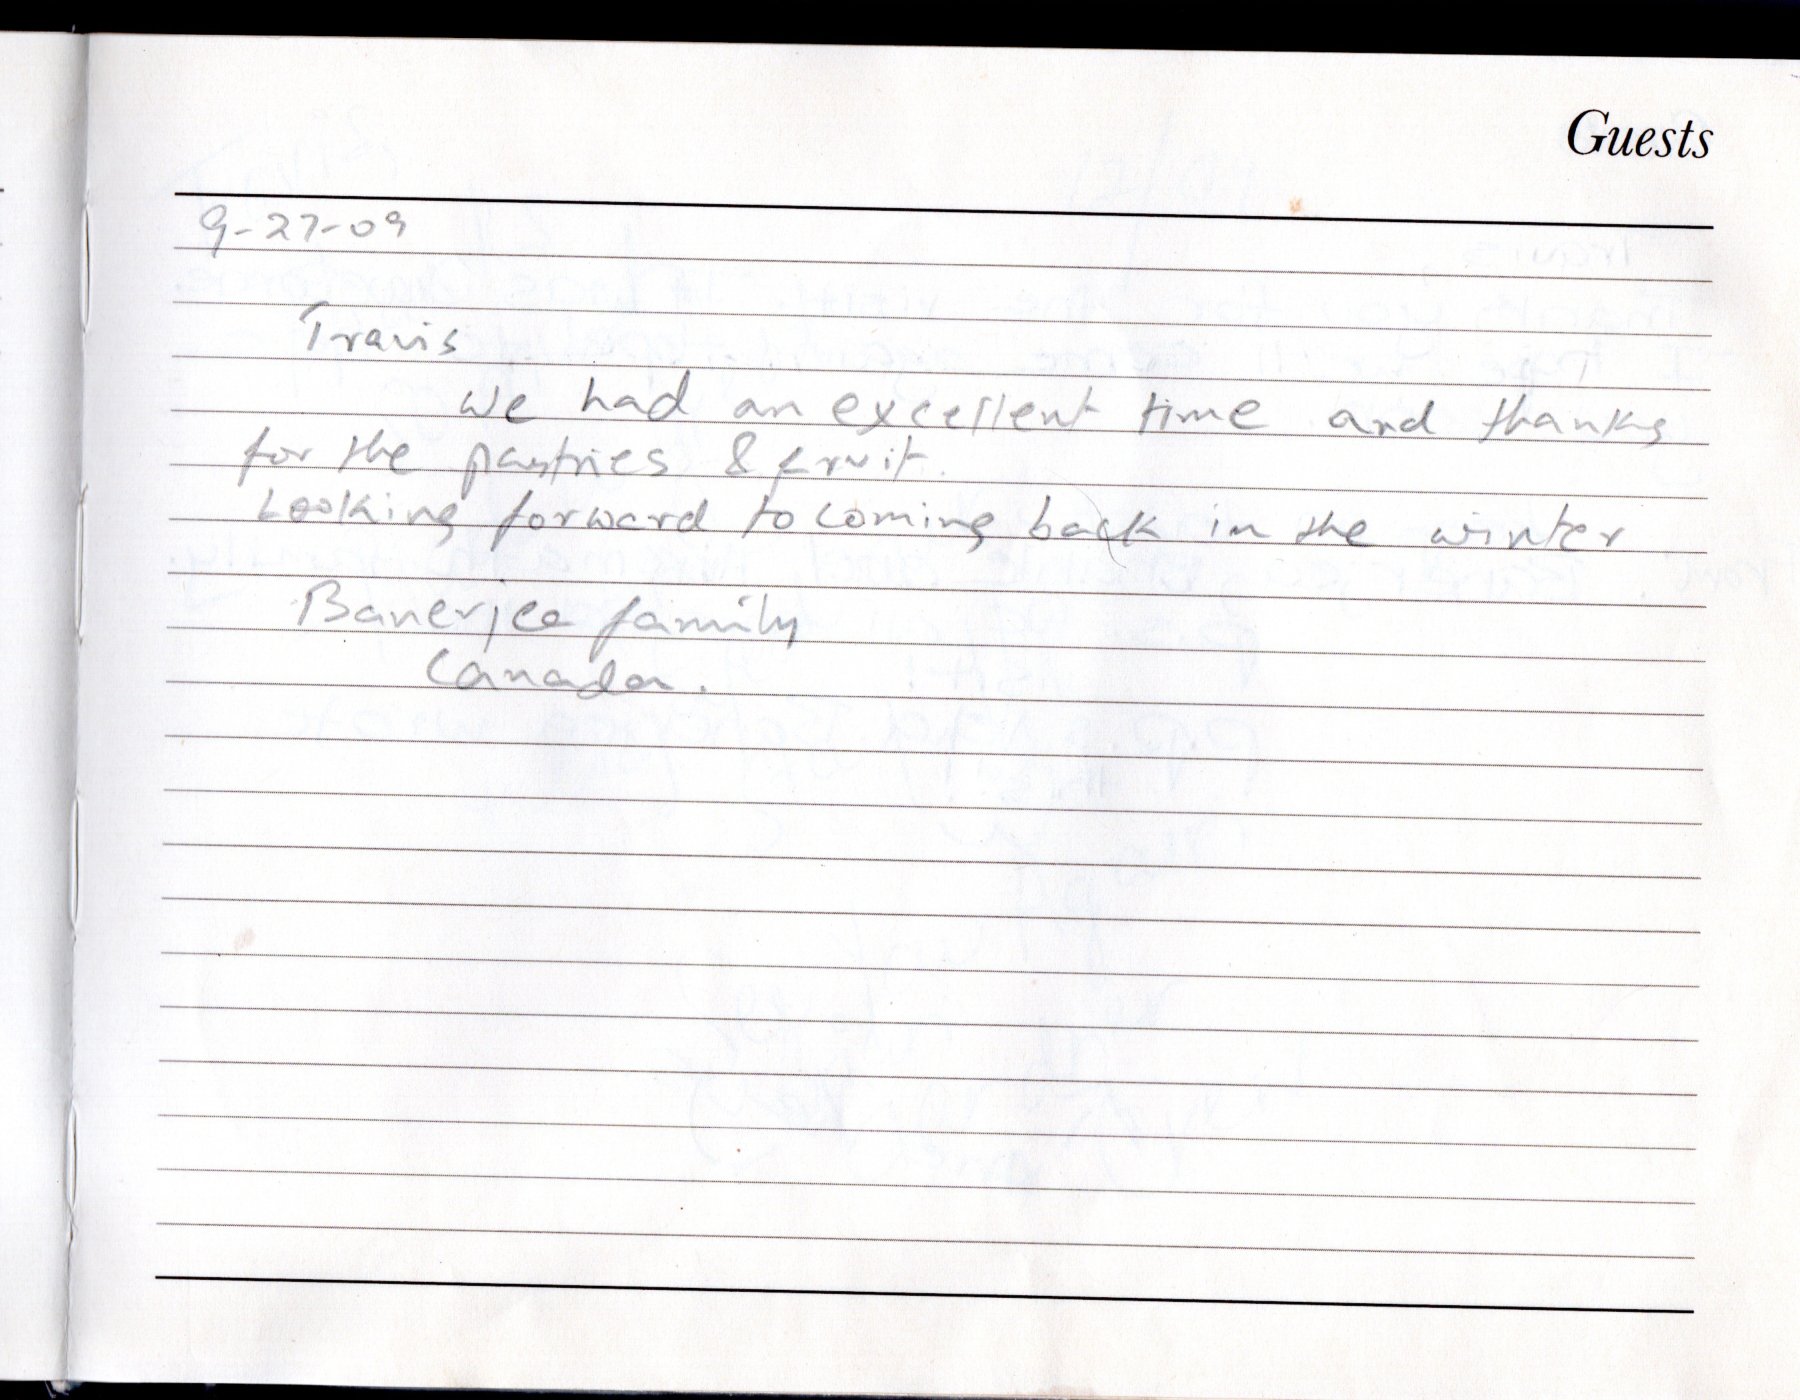 Guests
9-27-09
Travis
We had an excellent time and thanks
for the pastries & fruit.
Looking forward to coming back in the winter
Banerjee family
Canada.